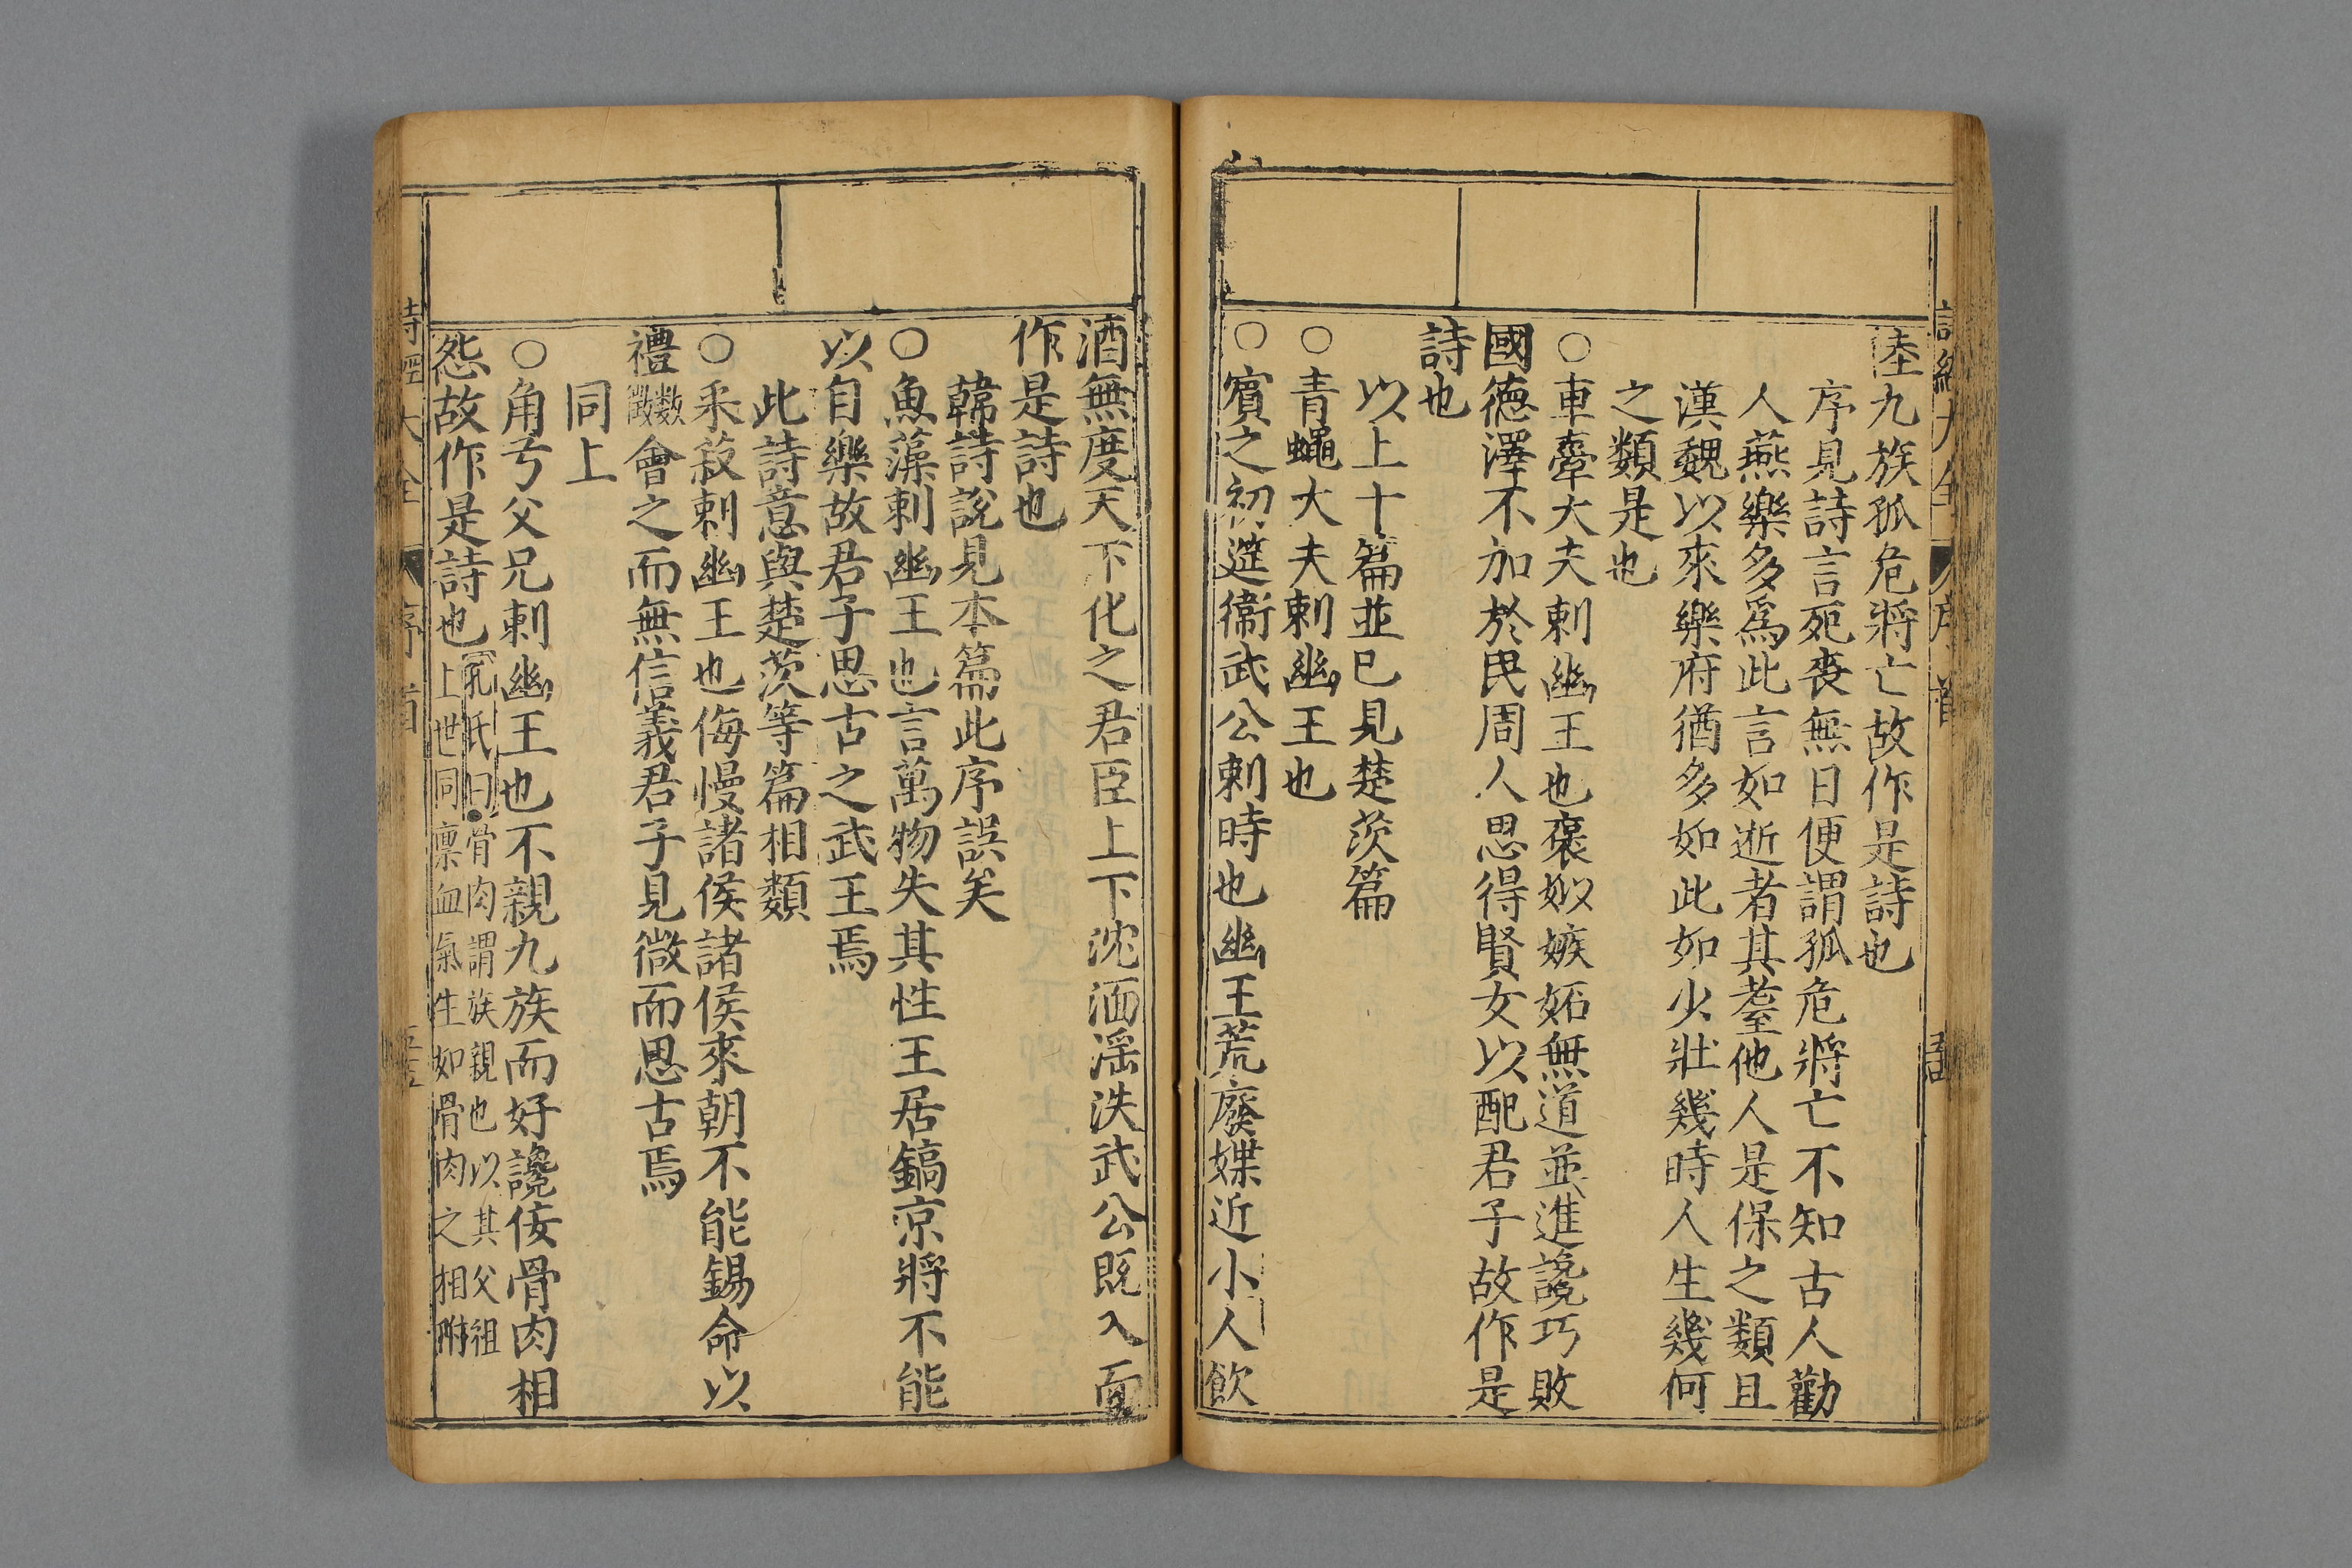 睦九族孤危將亡故作是詩也
序見詩言死喪無日便謂孤危將亡不知古人勸
人燕樂多爲此言如逝者其耋他人是保之類且
漢魏以來樂府猶多如此如少壯幾時人生幾何
之類是也
○車舝大夫刺幽王也褒姒嫉妬無道並進讒巧敗
國德澤不加於民周人思得賢女以配君子故作是
詩也
以上十篇並已見楚茨篇
○青蠅大夫刺幽王也
○賓之初筵衞武公刺時也幽王荒廢媟近小人飮
酒無度天下化之君臣上下沈湎淫泆武公旣入而
作是詩也
韓詩說見本篇此序誤矣
○魚藻刺幽王也言萬物失其性王居鎬京將不能
以自樂故君子思古之武王焉
此詩意與楚茨等篇相類
○采菽刺幽王也侮慢諸侯諸侯來朝不能錫命以
禮數徵會之而無信義君子見微而思古焉
同上
○角弓父兄刺幽王也不親九族而好讒佞骨肉相
怨故作是詩也孔氏曰骨肉謂族親也以其父祖
上世同稟血氣生如骨肉之相附
詩經大全 序 首